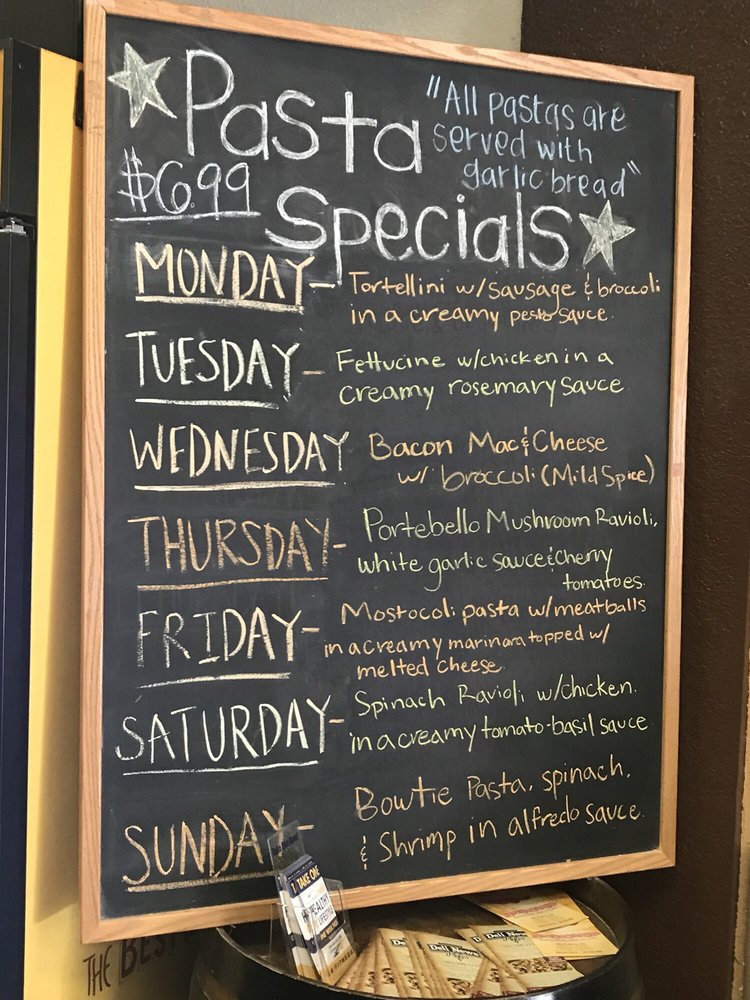 Pasta
Specials
$6.99
"All pastas are
served with
garlic bread"
MONDAY- Tortellini w/sausage & broccoli
in a creamy pesto sauce.
TUESDAY- Fettucine w/chicken in a
creamy rosemary sauce
WEDNESDAY Bacon Mac & Cheese
w/ broccoli (Mild Spice)
THURSDAY- Portebello Mushroom Ravioli,
white garlic sauce & cherry
tomatoes.
FRIDAY- Mostocoli pasta w/meatballs
in a creamy marinara topped w/
melted cheese.
SATURDAY- Spinach Ravioli w/chicken.
in a creamy tomato-basil sauce
SUNDAY- Bowtie Pasta, spinach,
& Shrimp in alfredo sauce.
TAKE ONE
HEALTHY
Deli News
Deli News
THE BEST